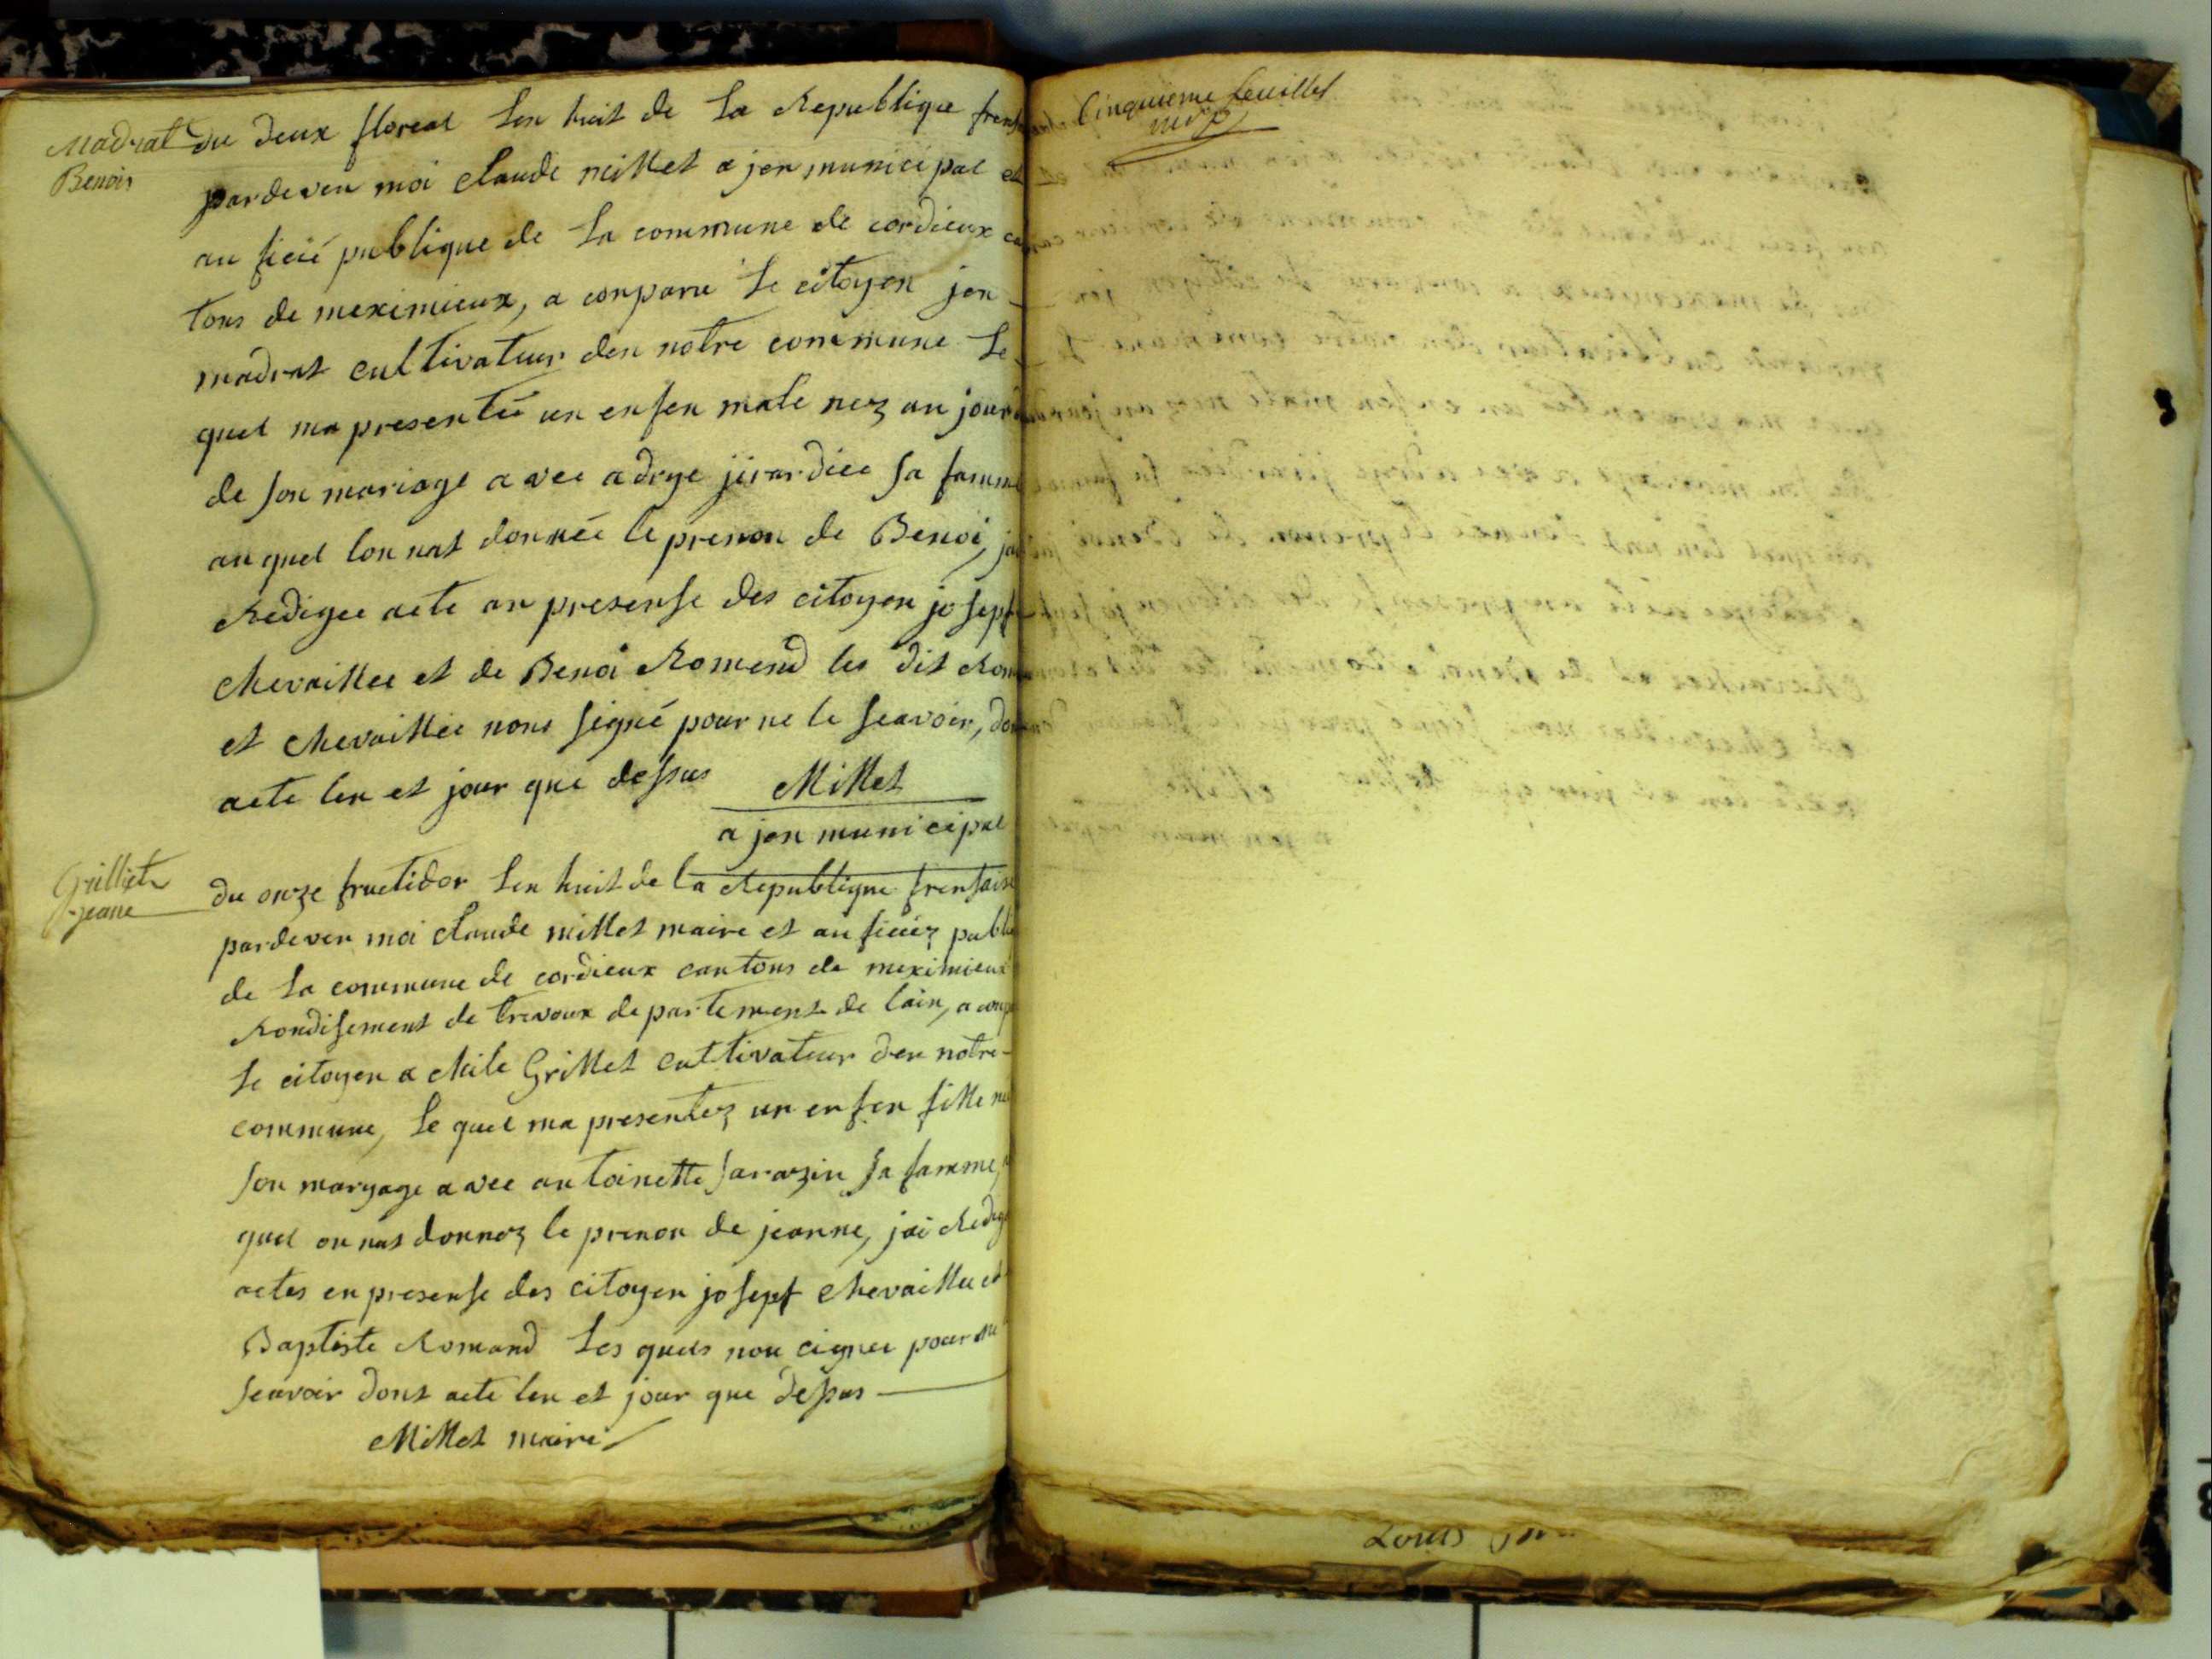 Madrat
Benois
du deux floreal len huit de la Republique
pardeven moi claude millet a jen municipal et
au ficié publique de la commune de cordieux
tons de meximieux, a conparu le citoyen jen
madrat cultivateur den notre commune le
quel ma presentée un enfen male nez au jour
de son mariage avec adrye jirardiee sa famme
au quel lon nat donnée le prenon de Benoi,
Redigee acte an presense des citoyen josepf
chevaillee et de Benoi Romend les dit
et chevaillée nons signé pour ne le seavoir,
acte len et jour que dessus
Millet
a jen municipal
Grilliet
jeane
du onze fructidor len huit de la Republique frensaise
pardeven moi claude millet maire et au ficiéz
de la commune de cordieux cantons de meximieux
Rondisement de trevoux departement de lain, a
le citoyen achile Grillet cultivateur den notre
commune, le quel ma presentez un enfen fille
son maryage avec antoinette sarazin sa famme,
quel on nat donnez le prenon de jeanne, jai
actes en presense des citoyen josepf chevaillee et
Baptiste Romand les quels non cignee pour ne
seavoir dont acte len et jour que dessus
Millet maire
Cinquieme feuillet
Louis